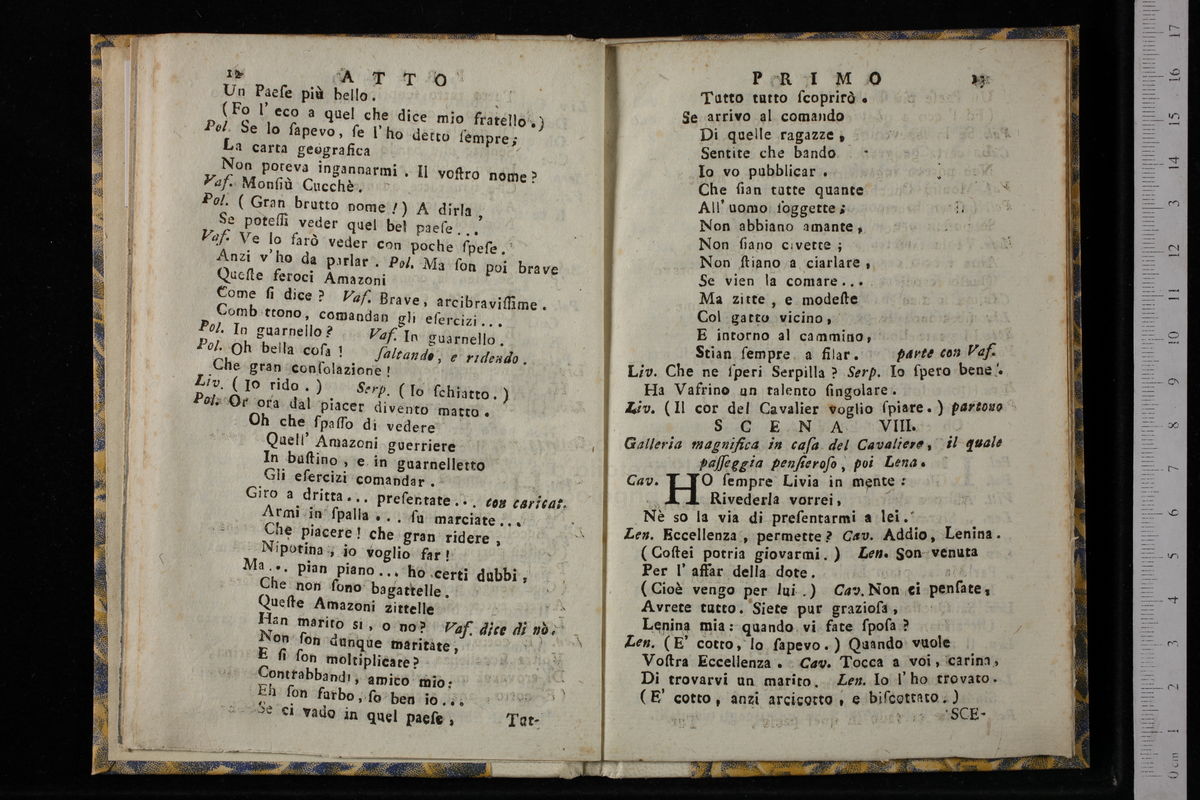 12 ATTO
Un Paeſe più bello.
(Fo l' eco a quel che dice mio fratello.)
Pol. Se lo ſapevo, ſe l'ho detto ſempre;
La carta geografica
Non poteva ingannarmi. Il voſtro nome?
Vaf. Monſiù Cucchè.
Pol. (Gran brutto nome!) A dirla,
Se poteſſi veder quel bel paeſe...
Vaf. Ve lo farò veder con poche ſpeſe.
Anzi v'ho da parlar. Pol. Ma ſon poi brave
Queſte feroci Amazoni
Come ſi dice? Vaf. Brave, arcibraviſſime.
Comb ttono, comandan gli eſercizi...
Pol. In guarnello? Vaf. In guarnello.
Pol. Oh bella coſa! ſaltando, e ridendo.
Che gran conſolazione!
Liv. (Io rido.) Serp. (Io ſchiatto.)
Pol. Or ora dal piacer divento matto.
Oh che ſpaſſo di vedere
Quell' Amazoni guerriere
In buſtino, e in guarnelletto
Gli eſercizi comandar.
Giro a dritta... preſentate... con caricat.
Armi in ſpalla... ſu marciate...
Che piacere! che gran ridere,
Nipotina, io voglio far!
Ma... pian piano... ho certi dubbi,
Che non ſono bagattelle.
Queſte Amazoni zittelle
Han marito sì, o no? Vaf. dice di nò.
Non ſon dunque maritate,
E ſi ſon moltiplicate?
Contrabbandi, amico mio:
Eh ſon furbo, ſo ben io...
Se ci vado in quel paeſe,
Tut-
PRIMO 13
Tutto tutto ſcoprirò.
Se arrivo al comando
Di quelle ragazze,
Sentite che bando
Io vo pubblicar.
Che ſian tutte quante
All'uomo ſoggette;
Non abbiano amante,
Non ſiano civette;
Non ſtiano a ciarlare,
Se vien la comare...
Ma zitte, e modeſte
Col gatto vicino,
E intorno al cammino,
Stian ſempre a filar. parte con Vaf.
Liv. Che ne ſperi Serpilla? Serp. Io ſpero bene.
Ha Vafrino un talento ſingolare.
Liv. (Il cor del Cavalier voglio ſpiare.) partono
SCENA VIII.
Galleria magnifica in caſa del Cavaliere, il quale
paſſeggia penſieroſo, poi Lena.
Cav. HO ſempre Livia in mente:
Rivederla vorrei,
Nè so la via di preſentarmi a lei.
Len. Eccellenza, permette? Cav. Addio, Lenina.
(Coſtei potria giovarmi.) Len. Son venuta
Per l'affar della dote.
(Cioè vengo per lui.) Cav. Non ci penſate,
Avrete tutto. Siete pur grazioſa,
Lenina mia: quando vi fate ſpoſa?
Len. (E' cotto, lo ſapevo.) Quando vuole
Voſtra Eccellenza. Cav. Tocca a voi, carina,
Di trovarvi un marito. Len. Io l'ho trovato.
(E' cotto, anzi arcicotto, e biſcottato.)
SCE-